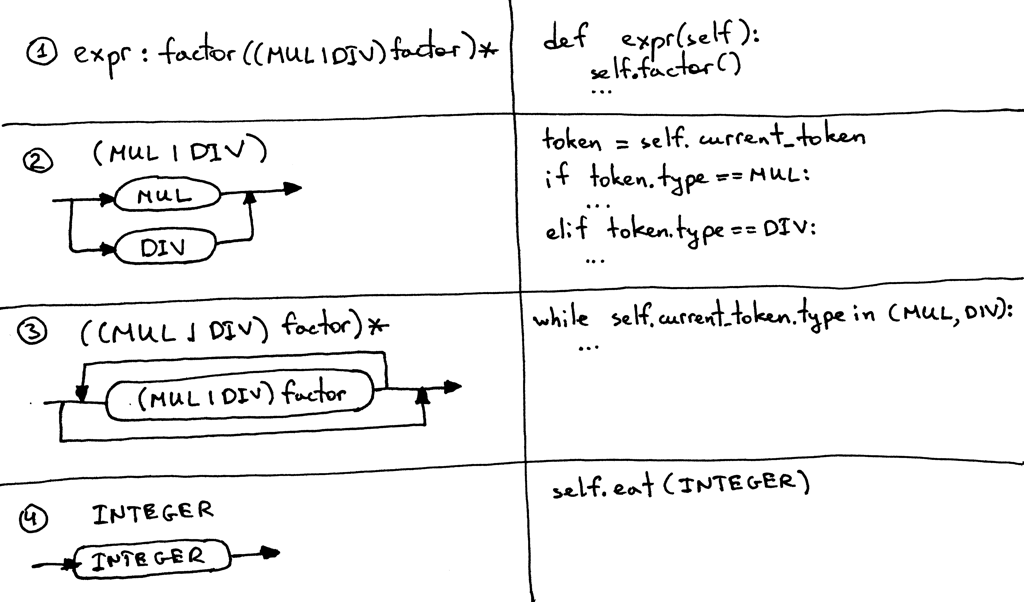 ① expr : factor ((MUL | DIV) factor)*
def expr(self):
self.factor()
...
② (MUL | DIV)
MUL
DIV
token = self.current_token
if token.type == MUL:
...
elif token.type == DIV:
...
③ ((MUL | DIV) factor)*
(MUL | DIV) factor
while self.current_token.type in (MUL, DIV):
...
④ INTEGER
INTEGER
self.eat(INTEGER)